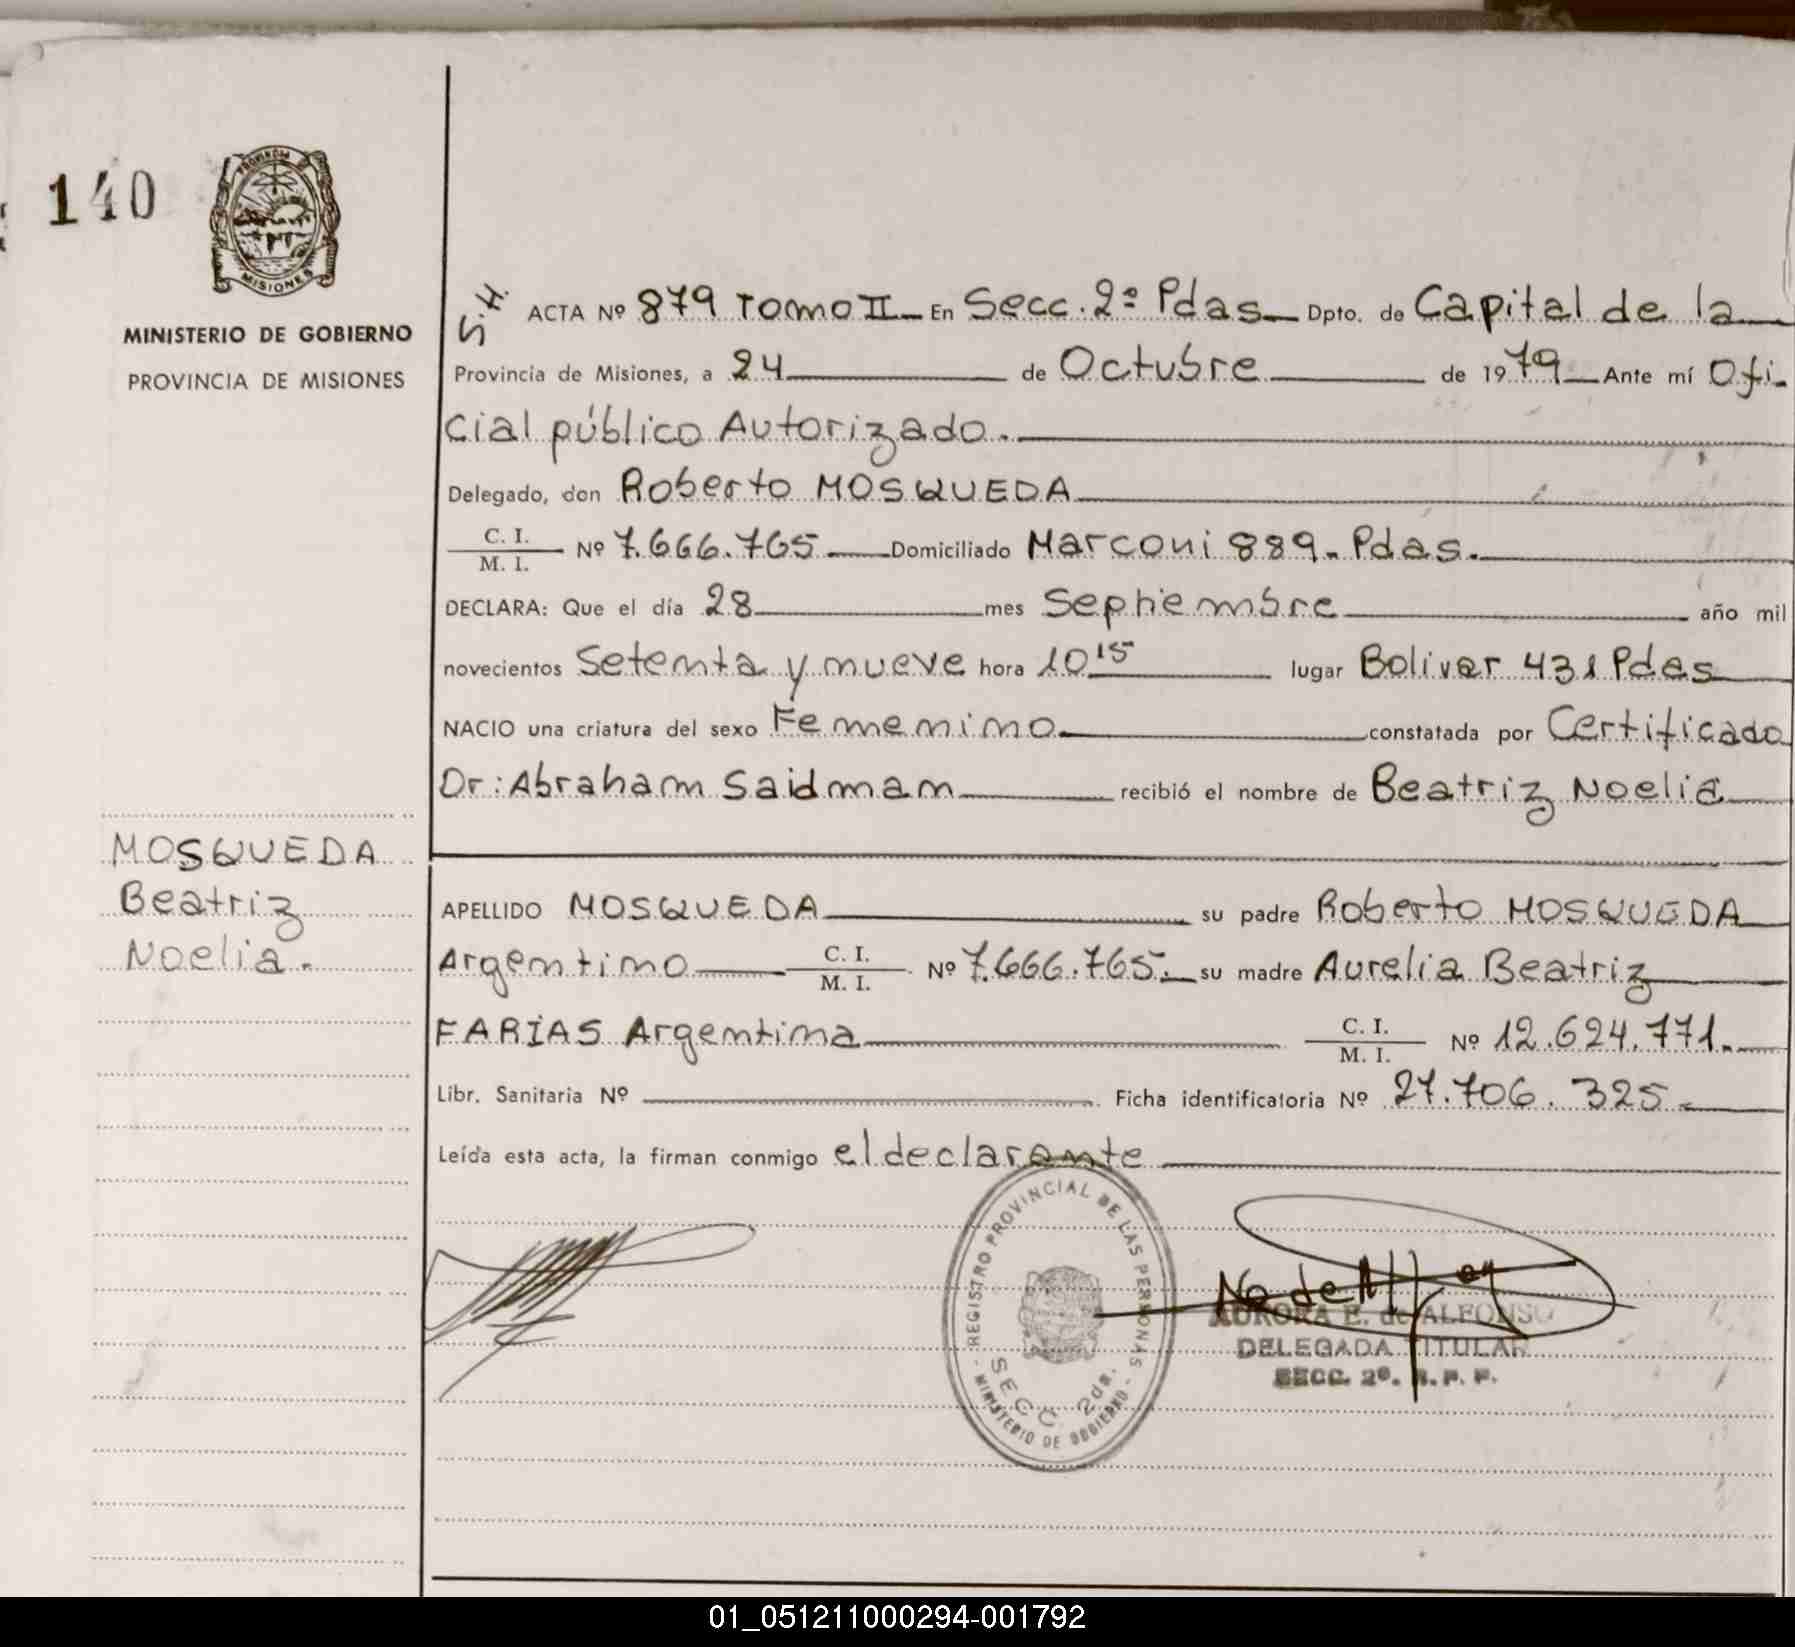 140
PROVINCIA
MISIONES
MINISTERIO DE GOBIERNO
PROVINCIA DE MISIONES
S.H.
ACTA Nº 879 Tomo II En Secc. 2º Pdas Dpto. de Capital de la
Provincia de Misiones, a 24 de Octubre de 1979 Ante mí Ofi-
cial público Autorizado.
Delegado, don Roberto MOSQUEDA
C. I.
M. I. Nº 7.666.765 Domiciliado Marconi 889. Pdas.
DECLARA: Que el día 28 mes Septiembre año mil
novecientos Setenta y nueve hora 10 15 lugar Bolivar 431 Pdas
NACIO una criatura del sexo Femenino constatada por Certificado
Dr: Abraham Saidman recibió el nombre de Beatriz Noelia
MOSQUEDA
Beatriz
Noelia.
APELLIDO MOSQUEDA su padre Roberto MOSQUEDA
Argentino C. I. M. I. Nº 7.666.765. su madre Aurelia Beatriz
FARIAS Argentina C. I. M. I. Nº 12.624.771.
Libr. Sanitaria Nº Ficha identificatoria Nº 27.706.325.
Leída esta acta, la firman conmigo el declarante
REGISTRO PROVINCIAL DE LAS PERSONAS
SECC. 2da.
MINISTERIO DE GOBIERNO
AURORA E. de ALFONSO
DELEGADA TITULAR
SECC. 2º. R. P. P.
01_051211000294-001792